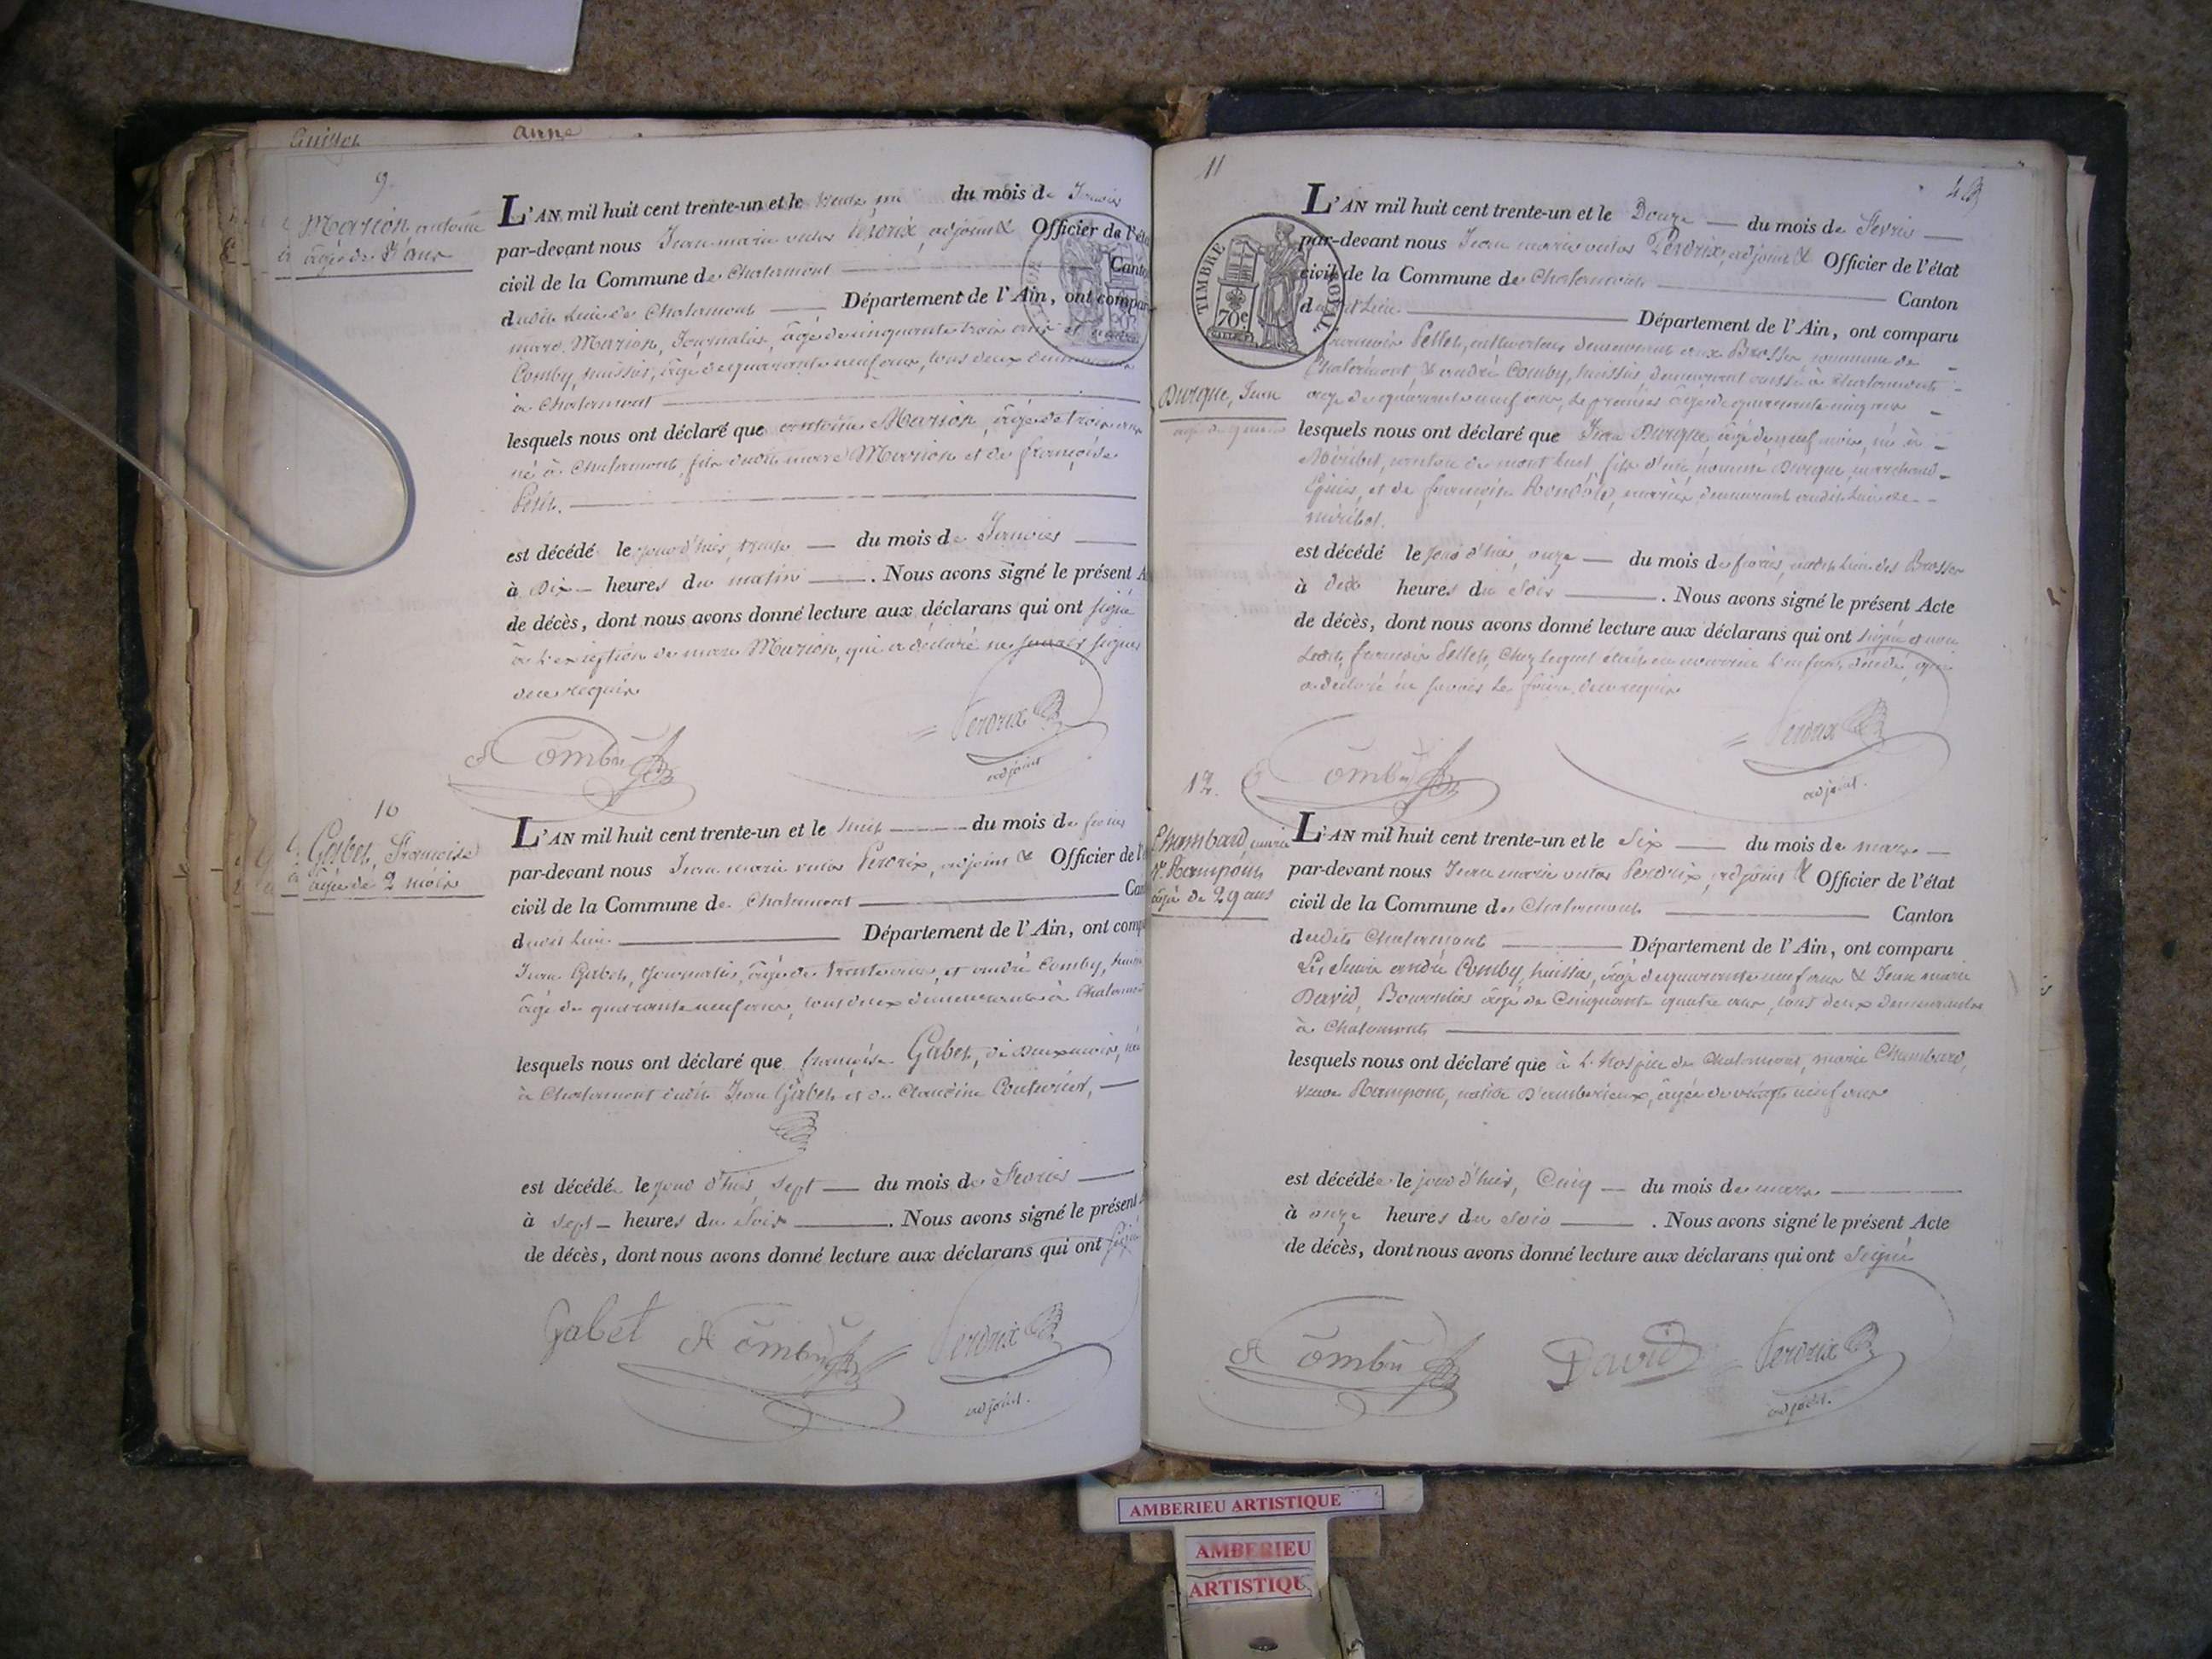 anne
9
Marion antoine
âgé de 3 ans
L'AN mil huit cent trente-un et le trente un du mois de Janvier
par-devant nous Jean marie victor Perdrix, adjoint & Officier de l'éta
civil de la Commune de Chalamont Canto
dudit Lieu de Chalamont Département de l'Ain, ont compar
marc Marion, Journalier, âgé de cinquante trois ans et andré
Comby, huissier, âgé de quarante neuf ans, tous deux demeurant
à Chalamont
lesquels nous ont déclaré que antoine Marion, âgé de trois ans
né à Chalamont, fils dudit marc Marion et de françoise
est décédé le jour d'hier, trente du mois de Janvier
à Dix heures du matin. Nous avons signé le présent A
de décès, dont nous avons donné lecture aux déclarans qui ont signé
à l'exception de marc Marion, qui a déclaré ne savoir signer
de ce requis
A Comby
Perdrix
adjoint
10
Gabet, Françoise
âgée de 2 mois
L'AN mil huit cent trente-un et le huit du mois de fevrier
par-devant nous Jean marie victor Perdrix, adjoint & Officier de l'é
civil de la Commune de Chalamont Can
dudit Lieu Département de l'Ain, ont comp
Jean Gabet, Journalier, âgé de trente ans, et andré Comby, huissier
âgé de quarante neuf ans, tous deux demeurants à Chalamont
lesquels nous ont déclaré que françoise Gabet, de deux mois, née
à Chalamont dudit Jean Gabet et de Claudine Couturier,
est décédée le jour d'hier, sept du mois de Fevrier
à sept heures du Soir. Nous avons signé le présent A
de décès, dont nous avons donné lecture aux déclarans qui ont signé
Gabet A Comby Perdrix
adjoint.
11
TIMBRE ROYAL
70c
Burque, Jean
L'AN mil huit cent trente-un et le Douze du mois de Fevrier
par-devant nous Jean marie victor Perdrix, adjoint & Officier de l'état
civil de la Commune de Chalamont Canton
dudit Lieu Département de l'Ain, ont comparu
francois Pellet, cultivateur demeurant aux Brosses, commune de
Chalamont, & andré Comby, huissier, demeurant aussi à Chalamont
âgé de quarante neuf ans, le premier âgé de quarante cinq ans
lesquels nous ont déclaré que Jean Burque, âgé de neuf mois, né à
Miribel, canton de mont luel, fils d'un nommé Burque, marchand
Epicier, et de françoise, mariés, demeurant audit Lieu de
miribel.
est décédé le jour d'hier, onze du mois de fevrier, audit Lieu des Brosses
à deux heures du Soir. Nous avons signé le présent Acte
de décès, dont nous avons donné lecture aux déclarans qui ont signé et non
Ledit francois Pellet, chez lequel était en nourrice l'enfant décédé, qui
a déclaré ne savoir le faire, de ce requis
A Comby
Perdrix
adjoint.
12.
Chambard, marie
Ve. Rampont
âgée de 29 ans
L'AN mil huit cent trente-un et le Six du mois de mars
par-devant nous Jean marie victor Perdrix, adjoint & Officier de l'état
civil de la Commune de Chalamont Canton
dudit Chalamont Département de l'Ain, ont comparu
Les Sieurs andré Comby, huissier, âgé de quarante neuf ans & Jean marie
David, Bourrelier âgé de Cinquante quatre ans, tous deux demeurants
à Chalamont
lesquels nous ont déclaré que à L'hospice de Chalamont, marie Chambard,
veuve Rampont, native d'amberieux, âgée de vingt neuf ans
est décédée le jour d'hier, Cinq du mois de mars
à onze heures du Soir. Nous avons signé le présent Acte
de décès, dont nous avons donné lecture aux déclarans qui ont Signé
A Comby David Perdrix
adjoint.
AMBERIEU ARTISTIQUE
AMBERIEU
ARTISTIQU